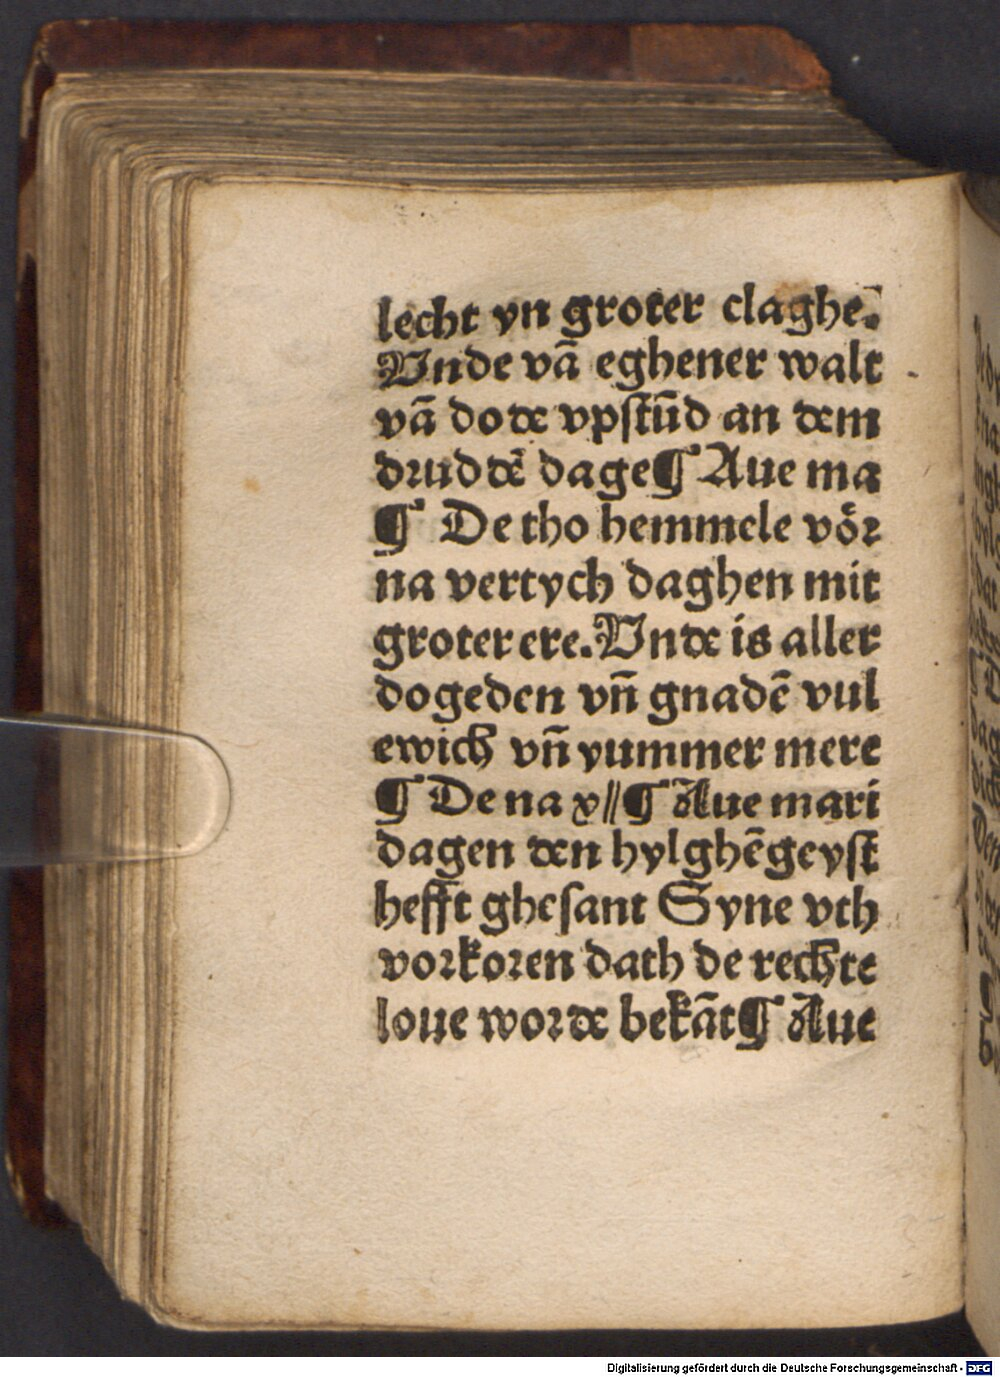 lecht yn groter claghe.
Unde vā eghener walt
vā dode vpstūd an dem
druddē dage¶ Aue ma
¶ De tho hemmele vör
na vertych daghen mit
groter ere. Unde is aller
dogeden vn̄ gnadē vul
ewich vn̄ yummer mere
¶ De na x//¶ Aue mari
dagen den hylghēgeyst
hefft ghesant Syne vth
vorkoren dath de rechte
loue worde bekāt¶ Aue
Digitalisierung gefördert durch die Deutsche Forschungsgemeinschaft - DFG